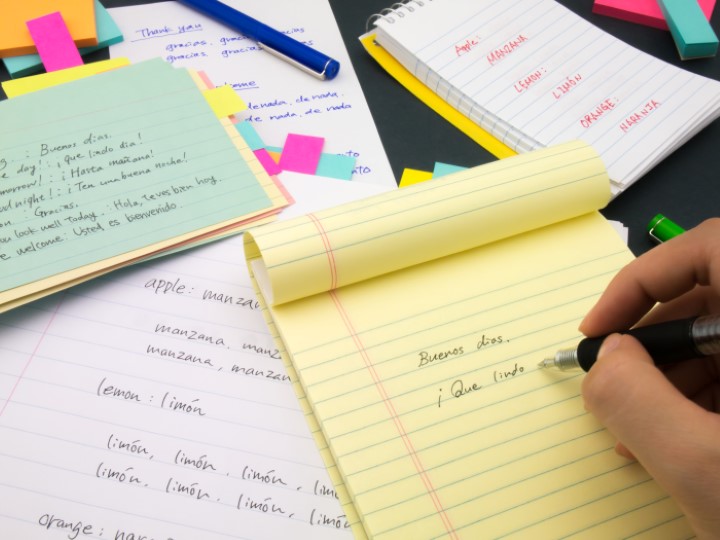 Thank you
gracias, gracias, gracias,
gracias, gracias, gracias
denada, denada,
de nada, de nada
Buenos dias.
day! : ¡que lindo dia!
: ¡Hasta mañana!
night! : ¡Ten una buena noche!
: Gracias.
you look well today. : Hola, te ves bien hoy.
welcome : Usted es bienvenido.
Apple:
MANZANA
LEMON:
LIMÓN
ORANGE:
NARANJA
apple : manzan
manzana, manz
manzana, manzan
lemon : limón
limón, limón, limón, lim
limón, limón, limón, limó
orange :
Buenos dias.
¡Que lindo